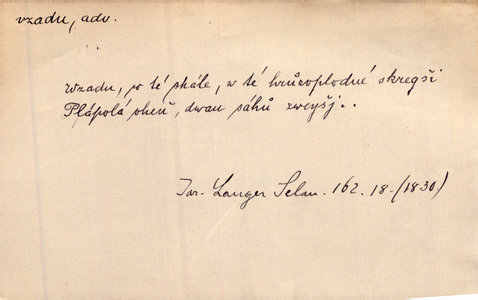 vzadu, adv.
Wzadu, w té skále, w té hrůzoplodné skregši
Plápolá oheň, dwau sáhů zweyšj..
Jar. Langer Selan. 162. 18-(1830)